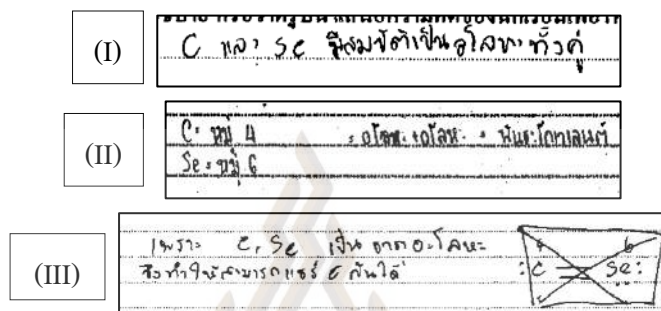 (I)
C และ Se มีสมบัติเป็นอโลหะทั้งคู่
(II)
C = หมู่ 4 = อโลหะ + อโลหะ = พันธะโคเวเลนต์
Se = หมู่ 6
(III)
เพราะ C, Se เป็น ธาตุอะโลหะ
จึงทำให้สามารถแชร์ e⁻ กันได้
4 6
:C = Se: